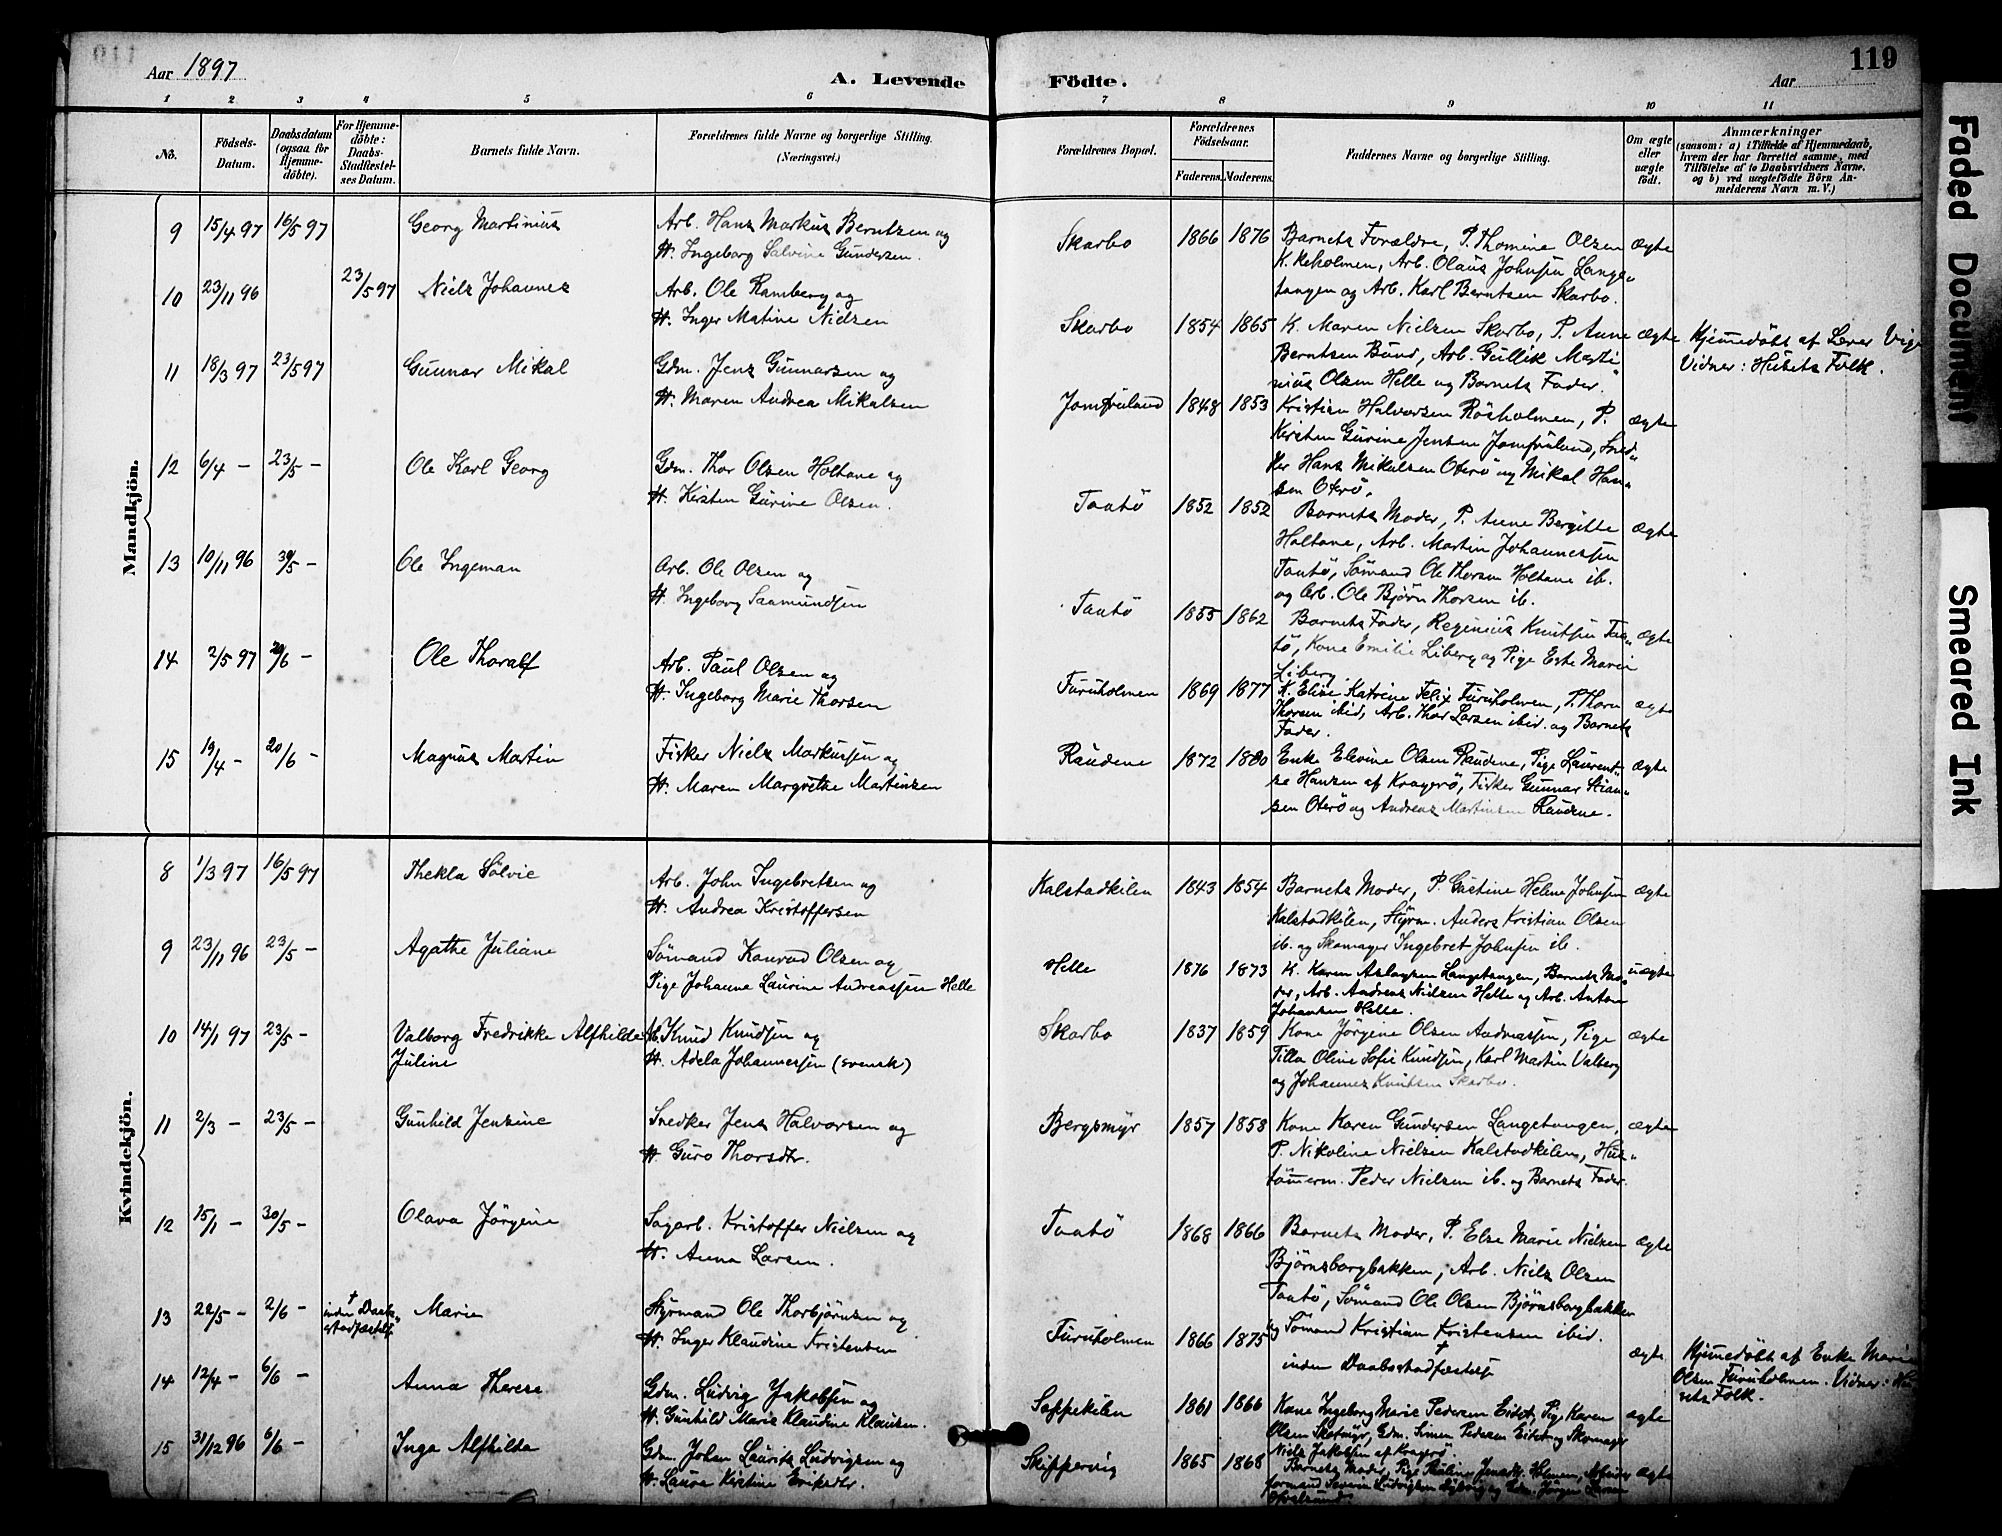 119
Aar 1897
A. Levende Födte.
Aar
1 2 3 4 5 6 7 8 9 10 11
No.
Födsels-Datum.
Daabsdatum (ogsaa for Hjemme-döbte).
For Hjemme-döbte: Daabs-Stadfæstel-ses Datum.
Barnets fulde Navn.
Forældrenes fulde Navne og borgerlige Stilling.
(Næringsvei.)
Forældrenes Bopæl.
Forældrenes Födselsaar.
Faderens. Moderens.
Faddernes Navne og borgerlige Stilling.
Om ægte eller uægte födt.
Anmærkninger
(saasom: a) i Tilfælde af Hjemmedaab, hvem der har forrettet samme, med Tilföielse af to Daabsvidners Navne, og b) ved uægtefödte Börn An-melderens Navn m. V.)
Mandkjön.
9 15/4 97 16/5 97 Georg Martinius
Arb. Hans Markus Berntsen og
H. Ingeborg Salvine Gundersen.
Skarbo 1866 1876
Barnets Forældre, P. Thomine Olsen ægte
Arb. Olaus Johnsen Lange-
tangen og Arb. Karl Berntsen Skarbo.
10 23/11 96 23/5 97 Niels Johannes
Arb. Ole Ramberg og
H. Inger Matine Nielsen
Skarbo 1854 1865
K. Maren Nielsen Skarbo, P. Anne ægte
Berntsen Bund, Arb. Gullik Marti-
nius Olsen Helle og Barnets Fader.
Hjemmedöbt af Lærer Vige
Vidner: Husets Folk.
11 18/3 97 23/5 97 Gunnar Mikal
Gdm. Jens Gunnarsen og
H. Maren Andrea Mikalsen
Jomfruland 1848 1853
Kristian Halvorsen Rösholmen, P. ægte
Kirsten Gurine Jensen Jomfruland, Sned-
ker Hans Mikalsen Oterö og Mikal Han-
sen Oterö.
12 6/4 – 23/5 – Ole Karl Georg
Gdm. Thor Olsen Holtane og
H. Kirsten Gurine Olsen.
Taatö 1852 1852
Barnets Moder, P. Anne Bergitte ægte
Holtane, Arb. Martin Johannessen
Taatö, Sömand Ole Thorsen Holtane ib.
og Arb. Ole Björn Thorsen ib.
13 10/11 96 30/5 – Ole Ingeman
Arb. Ole Olsen og
H. Ingeborg Saamundsen
Taatö 1855 1862
Barnets Fader, Reginius Knutsen Taa- ægte
tö, Kone Emilie Liberg og Pige Este Marie
Liberg.
14 2/5 97 /6 – Ole Thoralf
Arb. Paul Olsen og
H. Ingeborg Marie Thorsen
Furuholmen 1869 1877
K. Elise Katrine Felix Furuholmen, P. Thora ægte
Thorsen ibid, Arb. Thor Larsen ibid. og Barnets
Fader.
15 19/4 – 20/6 – Magnus Martin
Fisker Niels Markussen og
H. Maren Margrethe Martinsen
Raudene 1872 1880
Enke Elevine Olsen Raudene, Pige Laurent- ægte
se Hansen af Kragerö, Fisker Gunnar Stian-
sen Oterö og Andreas Martinsen Raudene.
Kvindekjön.
8 1/3 97 16/5 97 Thekla Sölvie
Arb. John Ingebretsen og
H. Andrea Kristoffersen
Kalstadkilen 1843 1854
Barnets Moder, P. Gustine Helene Johnsen ægte
Kalstadkilen, Styrm. Anders Kristian Olsen
ib. og Skomager Ingebret Johnsen ib.
9 23/11 96 23/5 – Agathe Juliane
Sömand Konrad Olsen og
Pige Johanna Laurine Andreassen Helle
Helle 1876 1873
K. Karen Aslagsen Langetangen, Barnets Mo- uægte
der, Arb. Andreas Nielsen Helle og Arb. Anton
Johansen Helle.
10 14/1 97 23/5 – Valborg Fredrikke Alfhilde
Juline
Arb. Knud Knudsen og
H. Adela Johannessen (svensk)
Skarbo 1837 1859
Kone Jörgine Olsen Andreassen, Pige ægte
Tilla Oline Sofie Knudsen, Karl Martin Valberg
og Johannes Knutsen Skarbo.
11 2/3 – 23/5 – Gunhild Jensine
Snedker Jens Halvorsen og
H. Guro Thorsdtr.
Bergsmyr 1857 1858
Kone Karen Gundersen Langetangen, ægte
P. Nikoline Nielsen Kalstadkilen, Hus-
tömerm. Peder Nielsen ib. og Barnets Fader.
12 15/1 – 30/5 – Olava Jörgine
Sagarb. Kristoffer Nielsen og
H. Anna Larsen.
Taatö 1868 1866
Barnets Moder, P. Else Marie Nielsen ægte
Björnsborgbakken, Arb. Niels Olsen
Taatö, Sömand Ole Olsen Björnsborgbakken
og Sömand Kristian Kristensen ibid.
13 22/5 – 2/6 – † inden Daabs-
stadfæstelse
Marie
Styrmand Ole Thorbjörnsen og
H. Inger Klaudine Kristensen
Furuholmen 1866 1875
†
inden Daabsstadfæstelse ægte
Hjemmedöbt af Enke Marie
Olsen Furuholmen. Vidner: Hu-
sets Folk.
14 12/4 – 6/6 – Anna Therese
Gdm. Ludvig Jakobsen og
H. Gunhild Marie Klaudine Klausen.
Soppekilen 1861 1866
Kone Ingeborg Marie Pedersen Eidet, Pige Karen ægte
Olsen Slotmyr, Gdm. Simen Pedersen Eidet og Skomager
Niels Jakobsen af Kragerö.
15 31/12 96 6/6 – Inga Alfhilda
Gdm. Johan Laurits Ludvigsen og
H. Laura Kirstine Eriksdtr.
Skippervig 1865 1868
Barnets Moder, Pige Pauline Holmen, Arbeider ægte
formand Severin Ludvigsen og Gdm. Jörgen Larsen
Faded Document
Smeared Ink